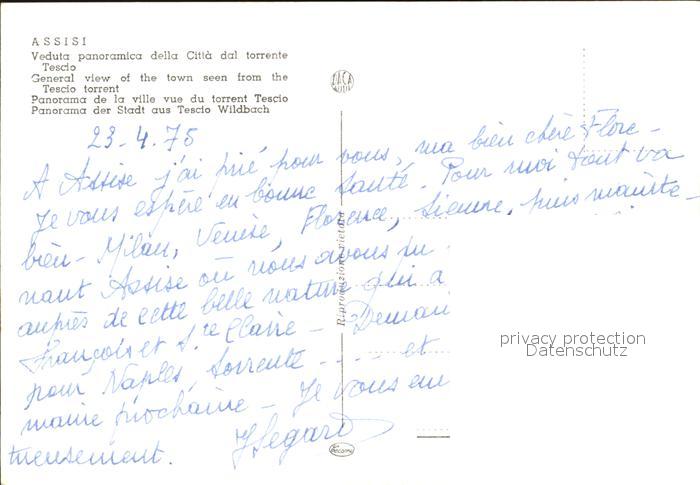 ASSISI
Veduta panoramica della Città dal torrente
Tescio
General view of the town seen from the
Tescio torrent
Panorama de la ville vue du torrent Tescio
Panorama der Stadt aus Tescio Wildbach
23-4-75
A Assise j'ai prié pour vous, ma bien chère Flore -
Je vous espère en bonne santé. Pour moi tout va
bien - Milan, Venise, Florence, Sienne, puis mainte-
nant Assise où nous avons
auprès de cette belle nature qui a
François et Ste Claire - Demain
pour Naples, Sorrente .... et
maine prochaine - Je vous em
tueusement. JSegard
Riproduzione vietata
privacy protection
Datenschutz